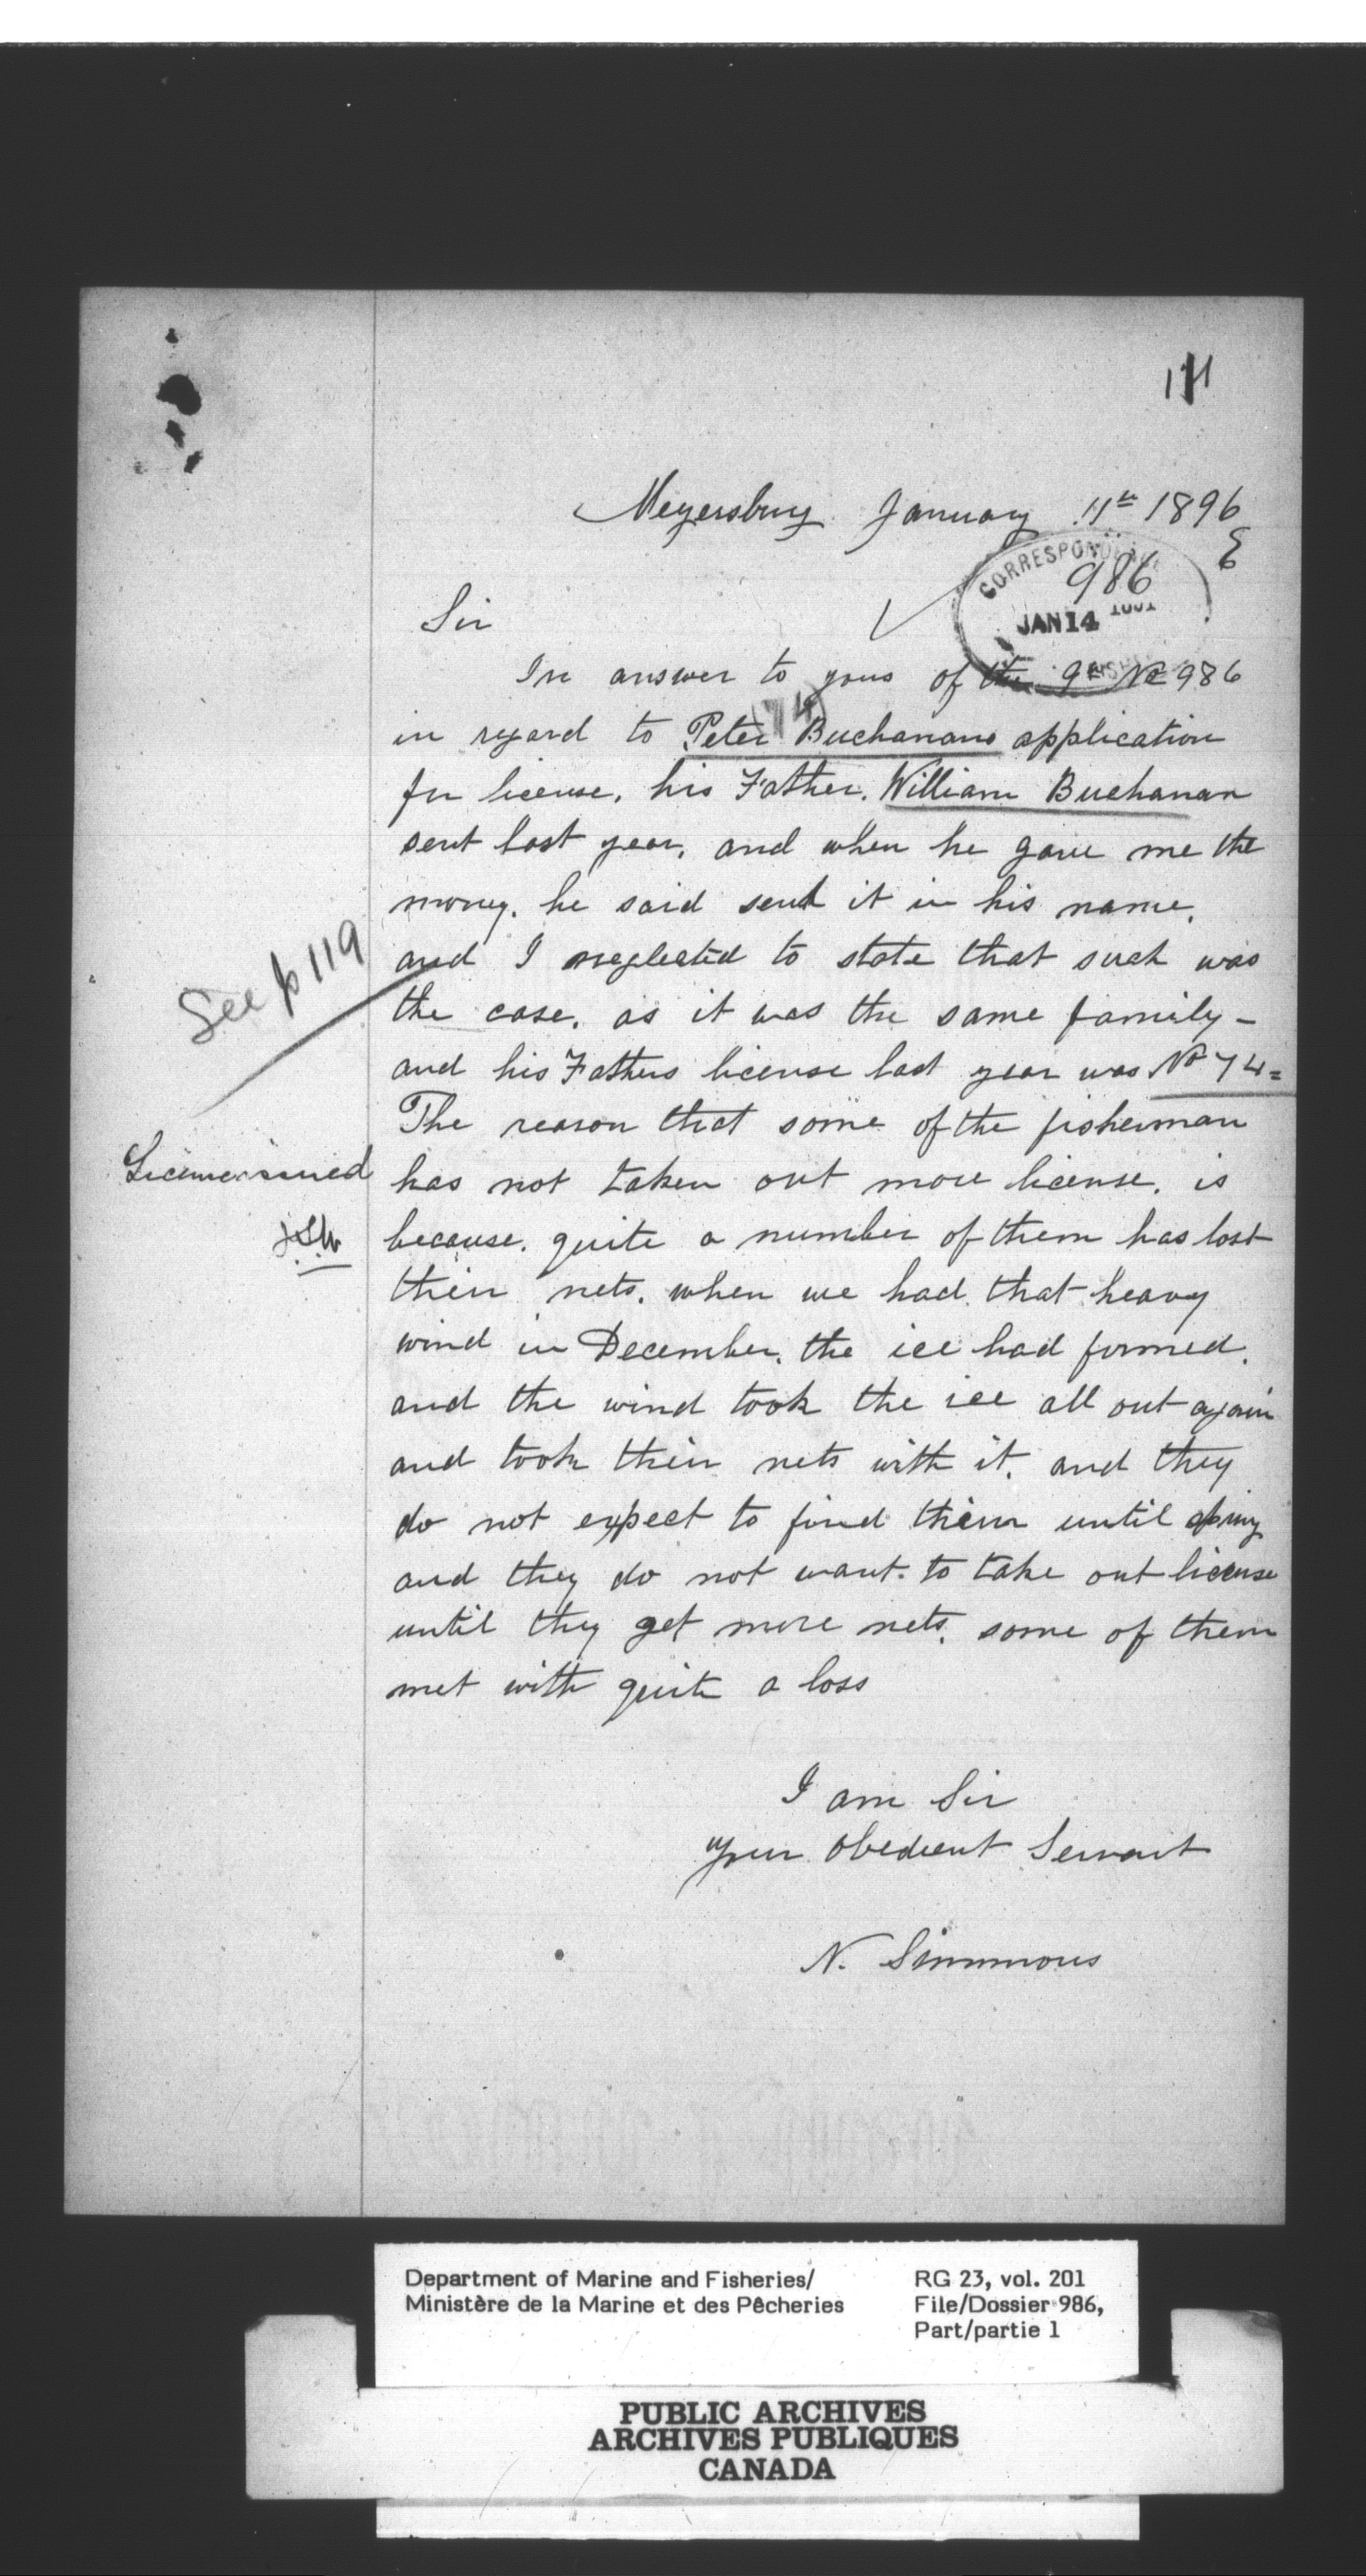 Meyersburg January 11th 1896
E
CORRESPONDENCE
986
JAN 14
Sir
In answer to yous of the 9th No 986
(74)
in regard to Peter Buchanans application
for license, his Father, William Buchanan
sent last year, and when he gave me the
money, he said send it in his name,
and I neglected to state that such was
the case, as it was the same family -
and his Fathers license last year was No 74 =
The reason that some of the fisherman
has not taken out more license, is
because, quite a number of them has lost
their nets, when we had that heavy
wind in December, the ice had formed,
and the wind took the ice all out again
and took their nets with it, and they
do not expect to find them until spring
and they do not want to take out license
until they get more nets, some of them
met with quite a loss
I am Sir
your Obedient Servant
N. Simmons
See p 119
License issued
Department of Marine and Fisheries/
Ministère de la Marine et des Pêcheries
RG 23, vol. 201
File/Dossier 986,
Part/partie 1
PUBLIC ARCHIVES
ARCHIVES PUBLIQUES
CANADA